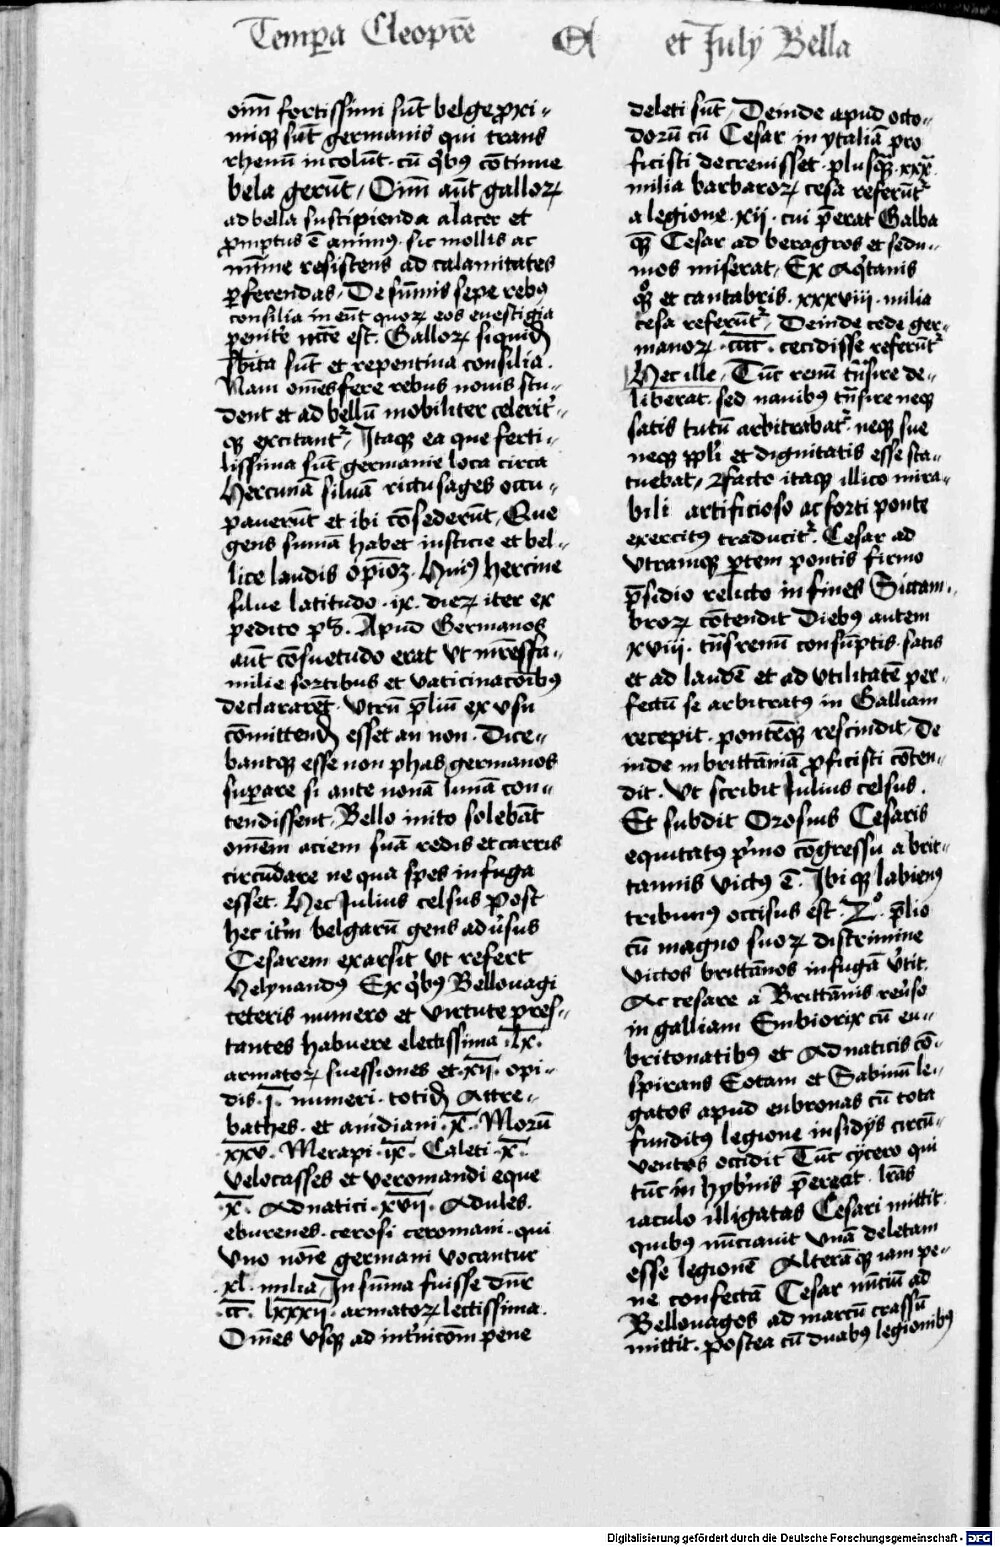 Temp̲a Cleopr̄e Et et July Bella
oim̄ fortissimi sūt belge p̲xi-
miqꝫ sūt germanis qui trans
rhenū incolūt. cū qͥbꝰ cōtinue
bela gerūt, Oim̄ aūt galloꝝ
ad bella suscipienda alacer et
p̲mptus ē animꝰ. sic mollis ac
mīme resistens ad calamitates
ꝑferendas, De sūmis sepe rebꝰ
consilia ineūt quoꝝ eos euestigia
penitēr nc̄ce est. Galloꝝ siquid̄
sb̄ita sūt et repentina consilia.
Nam om̄es fere rebus nouis stu-
dent et ad bellū mobiliter celerit̄-
qꝫ excitant̄, Itaqꝫ ea que ferti-
lissima sūt germanie loca circa
Hercuniā siluā rictusages occu-
pauerūt et ibi cōsederūt, Que
gens sumā habet iusticie et bel-
lice laudis opīoꝫ. Huiꝰ hercine
silue latitudo .ix. dieꝝ iter ex
pedito pꝫ. Apud Germanos
aūt cōsuetudo erat vt mr̄esfa-
milie sortibus et vaticinacōibꝰ
declararēt. vtrū p̄liū ex vsu
cōmittend̄ esset an non. Dice-
bantqꝫ esse non phas germanos
suꝑare si ante nonā lunā con-
tendissent, Bello inito solebāt
om̄em aciem suā redis et carris
circūdare ne qua spes in fuga
esset. Hec Julius celsus post
hec itm̄ belgarū gens aduīsus
Cesarem exarsit vt refert
Helynandꝰ Ex qͥbꝰ Bellouagi
ceteris numero et virtute pres-
tantes habuere electissima .lx.
armatoꝝ suessiones et .xij. opi-
dis .l. numeri. totid̄ Attre-
bathes. et anidiani .x. Morū
.xxv. Merapi .ix. Caleti .x.
velocasses et veromandi eque
.x. Adnatici .xvij. Adules.
eburenes. cerosi ceromani. qui
vno nōie germani vocantur
.xl. milia, In sūma fuisse dn̄r
.cc. lxxxij. armatoꝝ lectissima.
Om̄es vsqꝫ ad int̄nicōm pene
deleti sūt, Deinde apud octo-
dorū cū Cesar in ytaliā pro
ficisci decreuisset. plusqꝫ .xxx.
milia barbaroꝝ cesa referūt̄
a legione .xij. cui p̄erat Galba
qꝫ Cesar ad beragros et sedu-
nos miserat, Ex Aqͥtanis
qͦꝫ et cantabris .xxxviii. milia
cesa referūt̄, Deinde cede ger-
manoꝝ .cccc. cecidisse referūt̄
Hec ille, Tūc renū tn̄sire de-
liberat. sed nauibꝰ tn̄sire neqꝫ
satis tutū arbitrabat̄. neqꝫ sue
neqꝫ ppl̄i et dignitatis esse sta-
tuebat, ꝛfacto itaqꝫ illico mira-
bili artificioso ac forti ponte
exercitꝰ traducit̄. Cesar ad
vtramqꝫ ꝑtem pontis firmo
p̄sidio relicto in fines Siccam-
broꝝ cōtendit Diebꝰ autem
xviij. tn̄srenū consūptis. satis
et ad laudē et ad vtilitatē per-
fectū se arbitratꝰ in Galliam
recepit. pontēqꝫ rescindit, De
inde in brittāniā p̲ficisci cōten-
dit. vt scribit Julius celsus.
Et subdit Orosius Cesaris
equitatꝰ pͥmo cōgressu a brit-
tannis victꝰ ē. Ibiqꝫ labienꝰ
tribunꝰ occisus est. 2ͦ. p̄lio
cū magno suoꝝ discrimine
victos brittānos in fugā v̄tit.
Ac cesare a Brittānis reu̇so
in galliam Embiorix cū eu-
britonatibꝰ et Adnaticis cō-
spirans Cotam et Sabinū le-
gatos apud eubronas cū tota
funditꝰ legione insidijs circū-
ventos occidit Tūc cycero qui
tūc in hyb̄nis p̄erat. lr̄as
iaculo illigatas Cesari mittit.
quibus nūciauit vnā deletam
esse legionē Alterāqꝫ iam pe-
ne confectā Cesar nūciū ad
Bellouagos ad marcū crassū
mittit. postea cū duabꝰ legionibꝰ
Digitalisierung gefördert durch die Deutsche Forschungsgemeinschaft - DFG